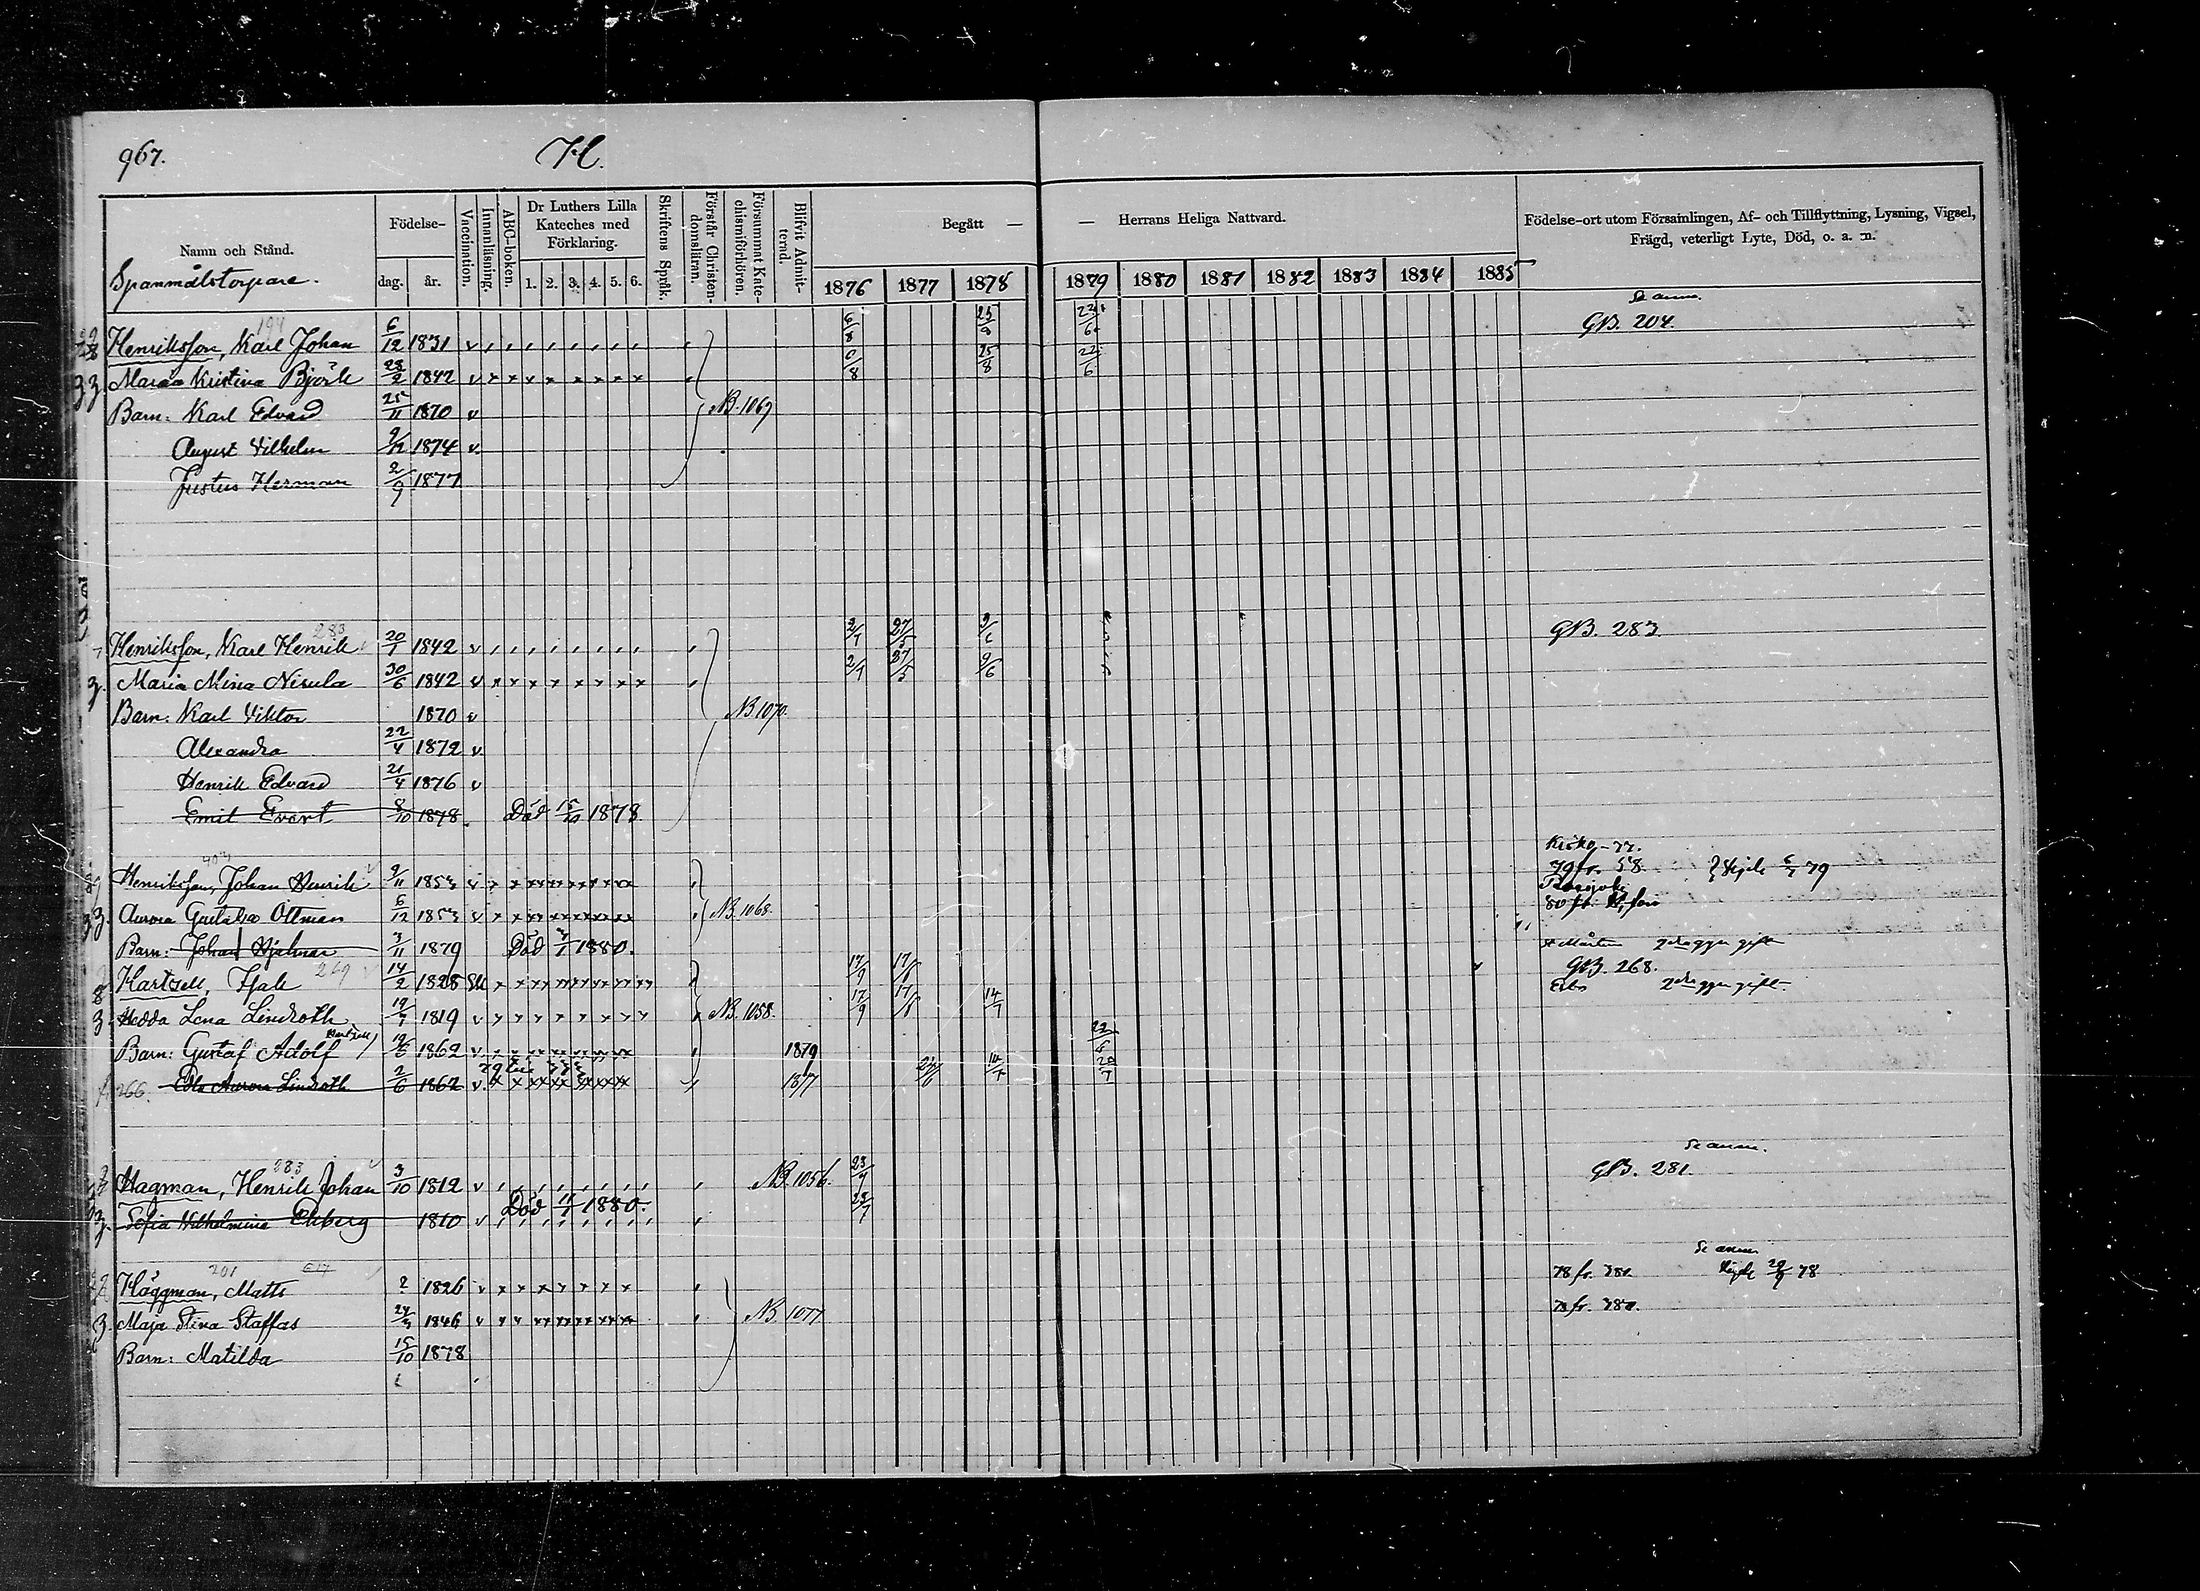 967. H.
Namn och Stånd. Födelse- dag. år. Vaccination. Innanläsning. ABC-boken. Dr Luthers Lilla Kateches med Förklaring. 1. 2. 3. 4. 5. 6. Skriftens Språk. Förstår Christendomsläran. Försummat Katechismiförhören. Blifvit Admitterad.
Begått — — Herrans Heliga Nattvard.
1876 1877 1878 1879 1880 1881 1882 1883 1884 1885
Födelse-ort utom Församlingen, Af- och Tillflyttning, Lysning, Vigsel,
Frägd, veterligt Lyte, Död, o. a. m.
Spanmålstorpare.
Henriksson, Karl Johan 6/12 1831 6/8 25/8 22/6 GB. 204.
Maria Kristina Björk 23/2 1842 6/8 25/8 22/6
Barn: Karl Edvard 25/11 1870 v NB. 1069
August Vilhelm 9/12 1874 v
Justus Herman 2/9 1877
283
Henriksson, Karl Henrik 20/1 1842 2/7 27/5 9/6 GB. 283.
Maria Mina Nisula 30/6 1842 2/7 27/5 9/6
Barn: Karl Viktor 1870 v NB 1070.
Alexandra 22/4 1872 v
Henrik Edvard 21/4 1876 v
Emil Evert 8/10 1878. Död 15/10 1878
Kisko
Henriksson, Johan Henrik 9/11 1853 79 fr. 58. 79
Aurora Gustafva Ottman 6/12 1853 NB. 1068.
Barn: Johan Hjalmar 3/11 1879 Död 1880.
229
Hartzell, Isak 14/2 1828 17/9 17/6 GB. 268.
Hedda Lena Lindroth 19/7 1819 NB. 1058. 17/9 17/6 14/7
Barn: Gustaf Adolf Hartzell 19/6 1862 1879
266. Eda Aurora Lindroth 2/6 1862 1877
283
Hagman, Henrik Johan 3/10 1812 NB. 1056. 23/7 GB. 281.
Sofia Vilhelmina Ekberg 1810 Död 1880. 23/7
201
Häggman, Matts 2 1826 78 fr. 78
Maja Stina Staffas 24/3 1846 NB 1077
Barn: Matilda 15/10 1878